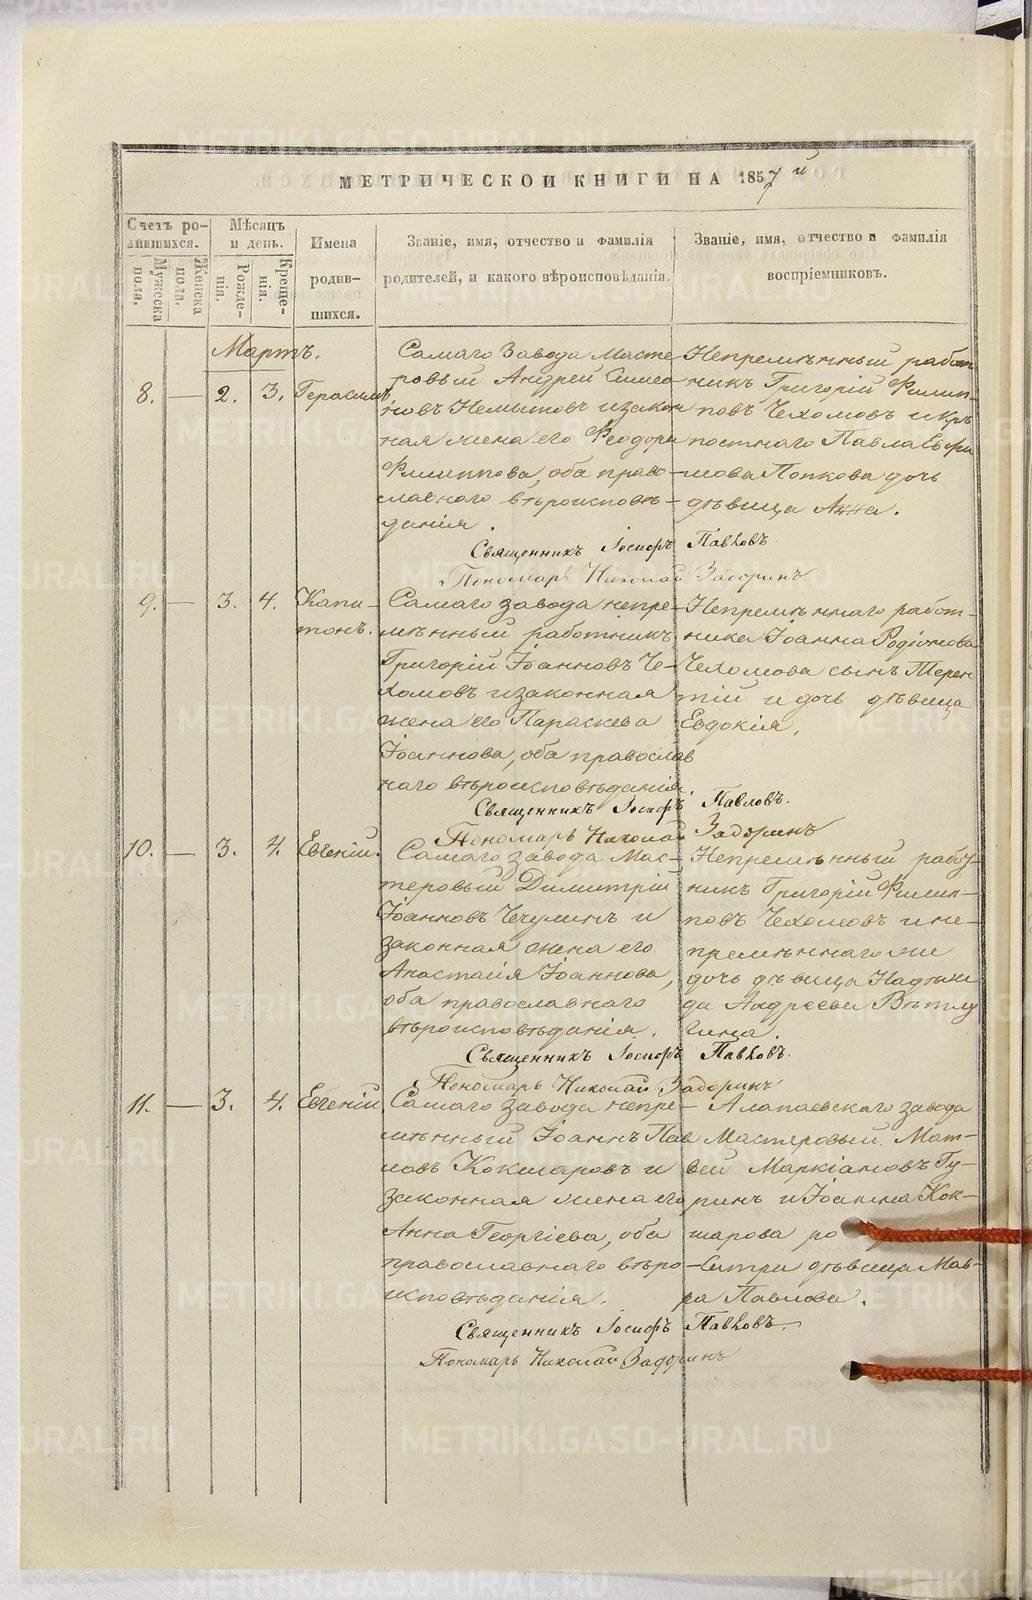 МЕТРИЧЕСКОЙ КНИГИ НА 1857й
Счетъ ро-
дившихся.
Мужеска пола.
Женска пола.
Мѣсяцъ
и день.
Рожде-
нія.
Креще-
нія.
Имена
родив-
шихся.
Званіе, имя, отчество и фамилія
родителей, и какого вѣроисповѣданія.
Званіе, имя, отчество и фамилія
воспріемниковъ.
Мартъ.
8. — 2. 3. Герасимъ
Самаго Завода Масте-
ровый Андрей Симео-
новъ и закон
ная жена его Феодора
Филиппова, оба право-
славнаго вѣроисповѣ-
данія.
Непремѣнный работ
никъ Григорій Филип-
повъ Чехомовъ и кр
постнаго Павла Ефи
мова Попкова дочь
дѣвица Анна.
Священникъ Іосифъ Павловъ
Пономарь Николай Задоринъ
9. — 3. 4. Капи-
тонъ.
Самаго завода непре-
мѣнный работникъ
Григорій Іоанновъ Че-
хомовъ и законная
жена его Параскева
Іоаннова, оба православ
наго вѣроисповѣданія.
Непремѣннаго работ-
ника Іоанна Родіонова
Чехомова сынъ Терен
тій и дочь дѣвица
Евдокія.
Священникъ Іосифъ Павловъ.
Пономарь Николай Задоринъ
10. — 3. 4. Евгеній.
Самаго завода Мас-
теровый Димитрій
Іоанновъ Чечулинъ и
законная жена его
Анастасія Іоаннова,
оба православнаго
вѣроисповѣданія.
Непремѣнный работ
никъ Григорій Филип-
повъ Чехомовъ и не-
премѣннаго же
дочь дѣвица Надеж
да Андреева Ветлу
гина.
Священникъ Іосифъ Павловъ.
Пономарь Николай Задоринъ
11. — 3. 4. Евгеній
Самаго завода непре-
мѣнный Іоаннъ Пав
ловъ Кокшаровъ и
законная жена его
Анна Георгіева, оба
православнаго вѣро-
исповѣданія.
Алапаевскаго завода
Мастеровый Мат-
вей Маркіановъ Гу-
ринъ и Іоанна Кок-
шарова
Сестра дѣвица Мав-
ра Павлова.
Священникъ Іосифъ Павловъ.
Пономарь Николай Задоринъ
METRIKI.GASO-URAL.RU